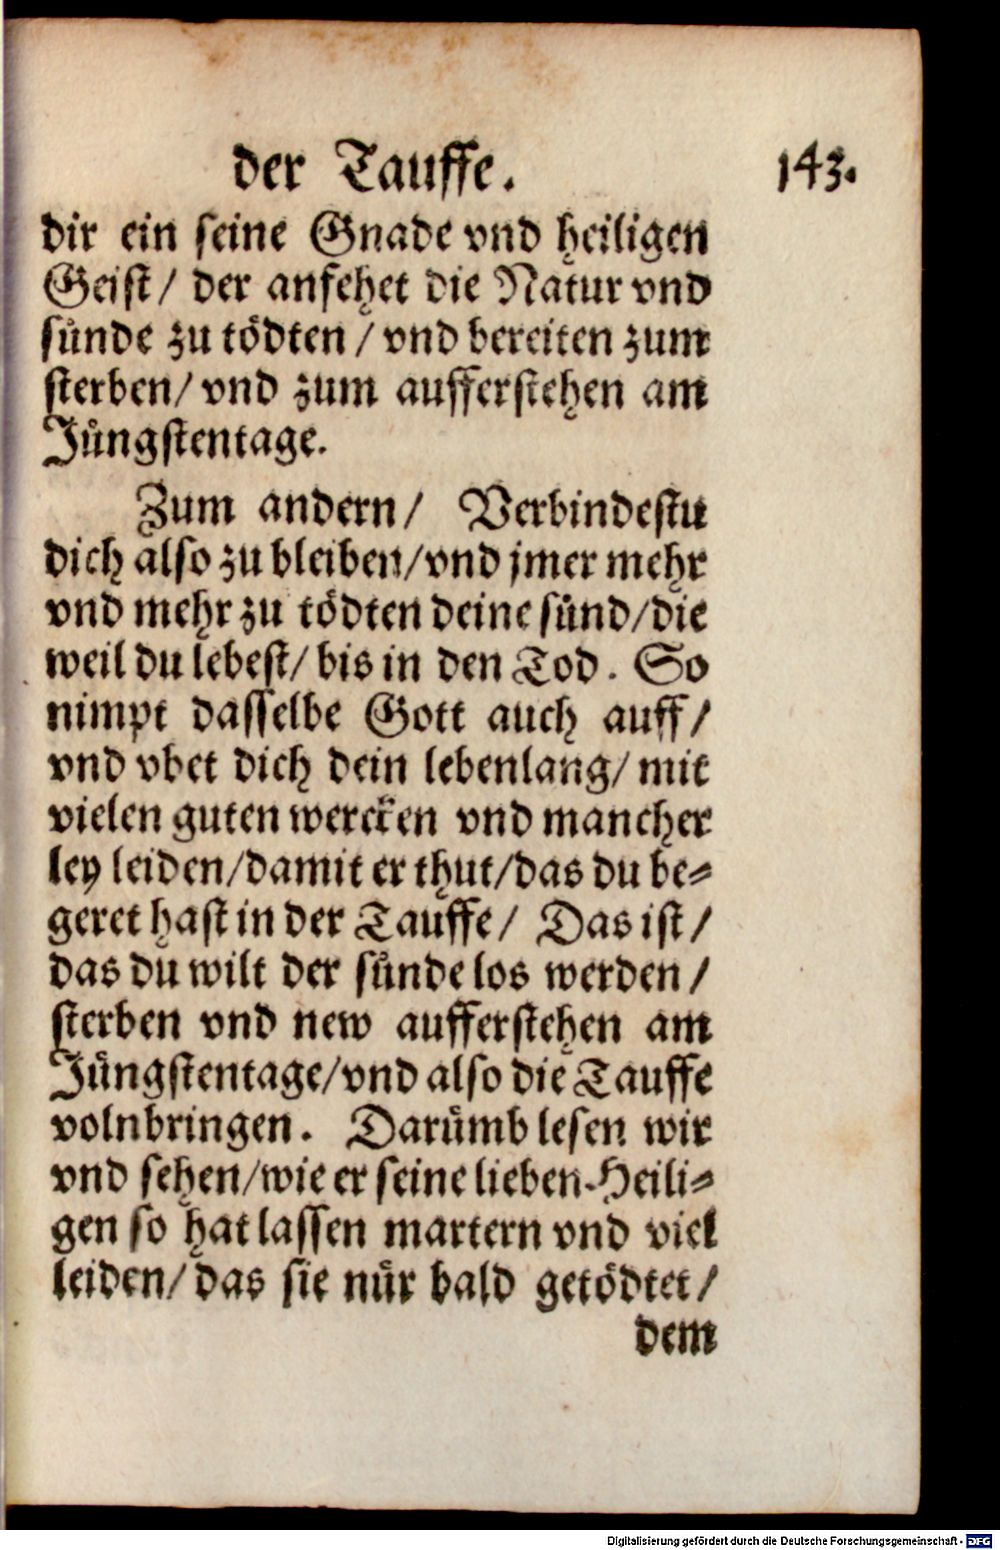 der Tauffe. 143.
dir ein seine Gnade vnd heiligen
Geist/ der anfehet die Natur vnd
sünde zu tödten / vnd bereiten zum
sterben/ vnd zum aufferstehen am
Jüngstentage.
Zum andern/ Verbindestu
dich also zu bleiben/vnd jmer mehr
vnd mehr zu tödten deine sünd/die
weil du lebest/ bis in den Tod. So
nimpt dasselbe Gott auch auff/
vnd vbet dich dein lebenlang/ mit
vielen guten wercken vnd mancher
ley leiden/damit er thut/das du be⸗
geret hast in der Tauffe/ Das ist/
das du wilt der sünde los werden/
sterben vnd new aufferstehen am
Jüngstentage/vnd also die Tauffe
volnbringen. Darümb lesen wir
vnd sehen/wie er seine lieben Heili⸗
gen so hat lassen martern vnd viel
leiden/ das sie nür bald getödtet/
dem
Digitalisierung gefördert durch die Deutsche Forschungsgemeinschaft - DFG